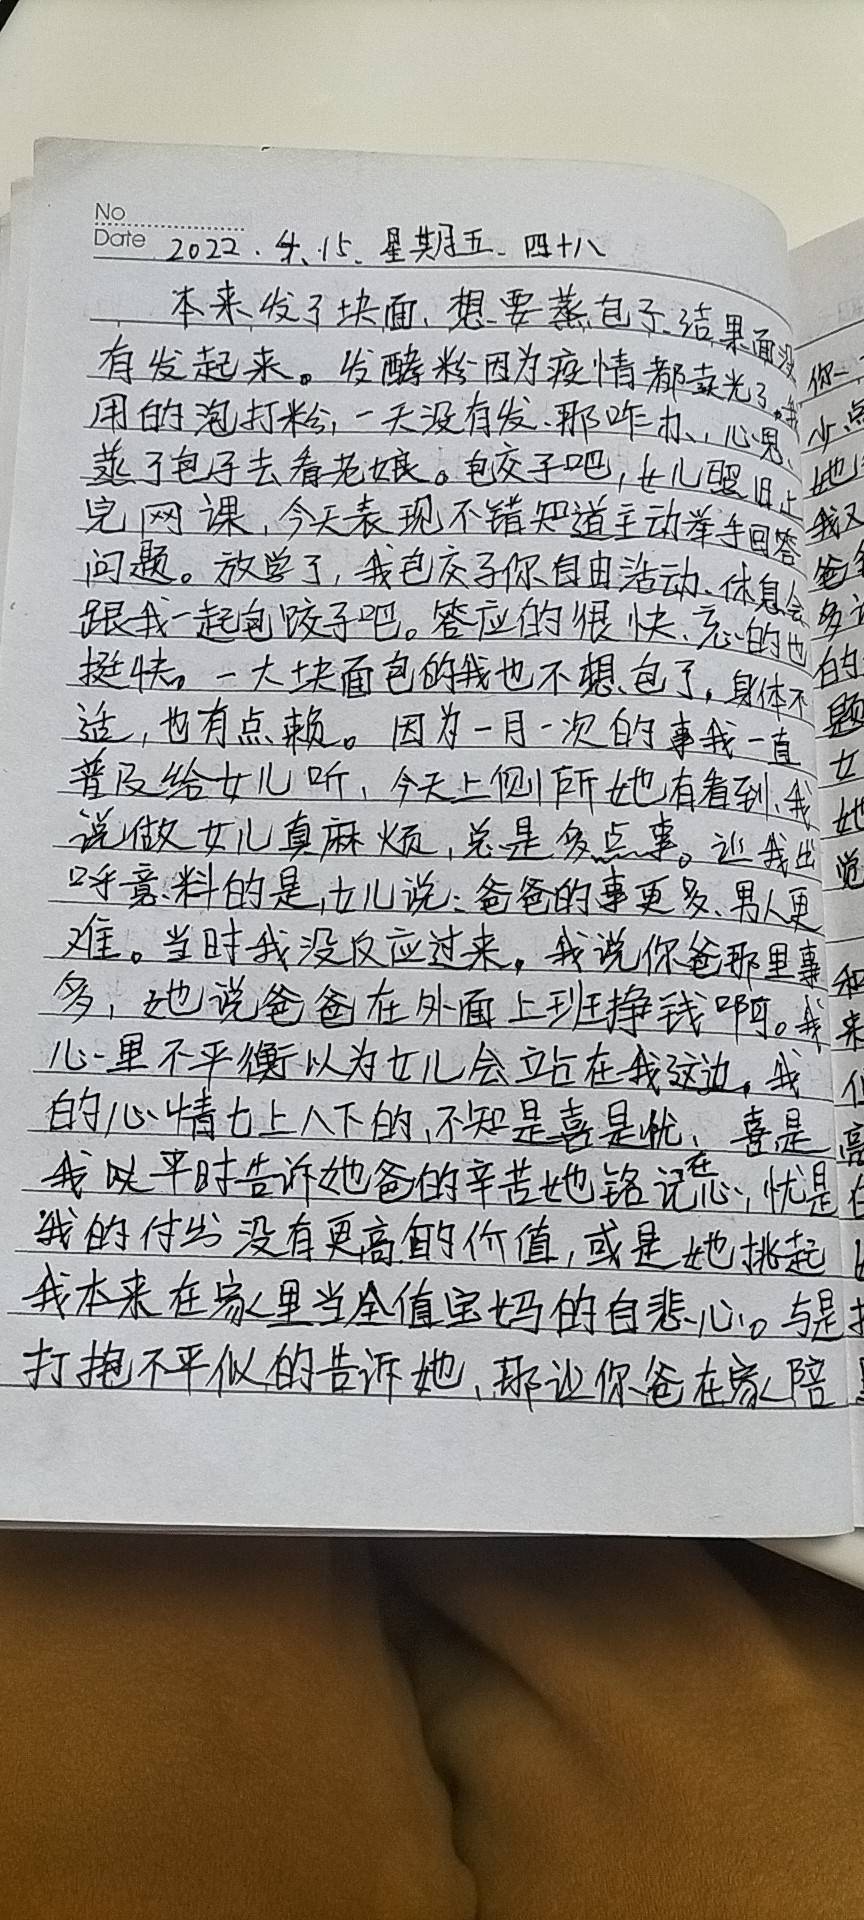 No
Date 2022.4.15.星期五.四十八
本来发了块面、想要蒸包子、结果面没
有发起来。发酵粉因为疫情都卖光了。我
用的泡打粉,一天没有发、那咋办、心思、
蒸了包子去看老娘。包交子吧,女儿照旧上
完网课,今天表现不错知道主动举手回答
问题。放学了,我包交子你自由活动、休息会
跟我一起包饺子吧。答应的很快、忘的也
挺快。一大块面包的我也不想包了。身体不
适,也有点赖。因为一月一次的事我一直
普及给女儿听、今天上侧所她有看到、我
说做女儿真麻烦,总是多点事。让我出
呼意料的是,女儿说:爸爸的事更多、男人更
难。当时我没反应过来。我说你爸那里事
多,她说爸爸在外面上班挣钱啊。我
心里不平衡以为女儿会站在我这边。我
的心情七上八下的、不知是喜是忧、喜是
我以平时告诉她爸的辛苦她铭记在心,忧是
我的付出没有更高的价值,或是她挑起
我本来在家里当全值宝妈的自悲心。与是
打抱不平似的告诉她、那让你爸在家陪
你一
少点
她
我又
爸
多
的
题
女
她
觉
和
来
高